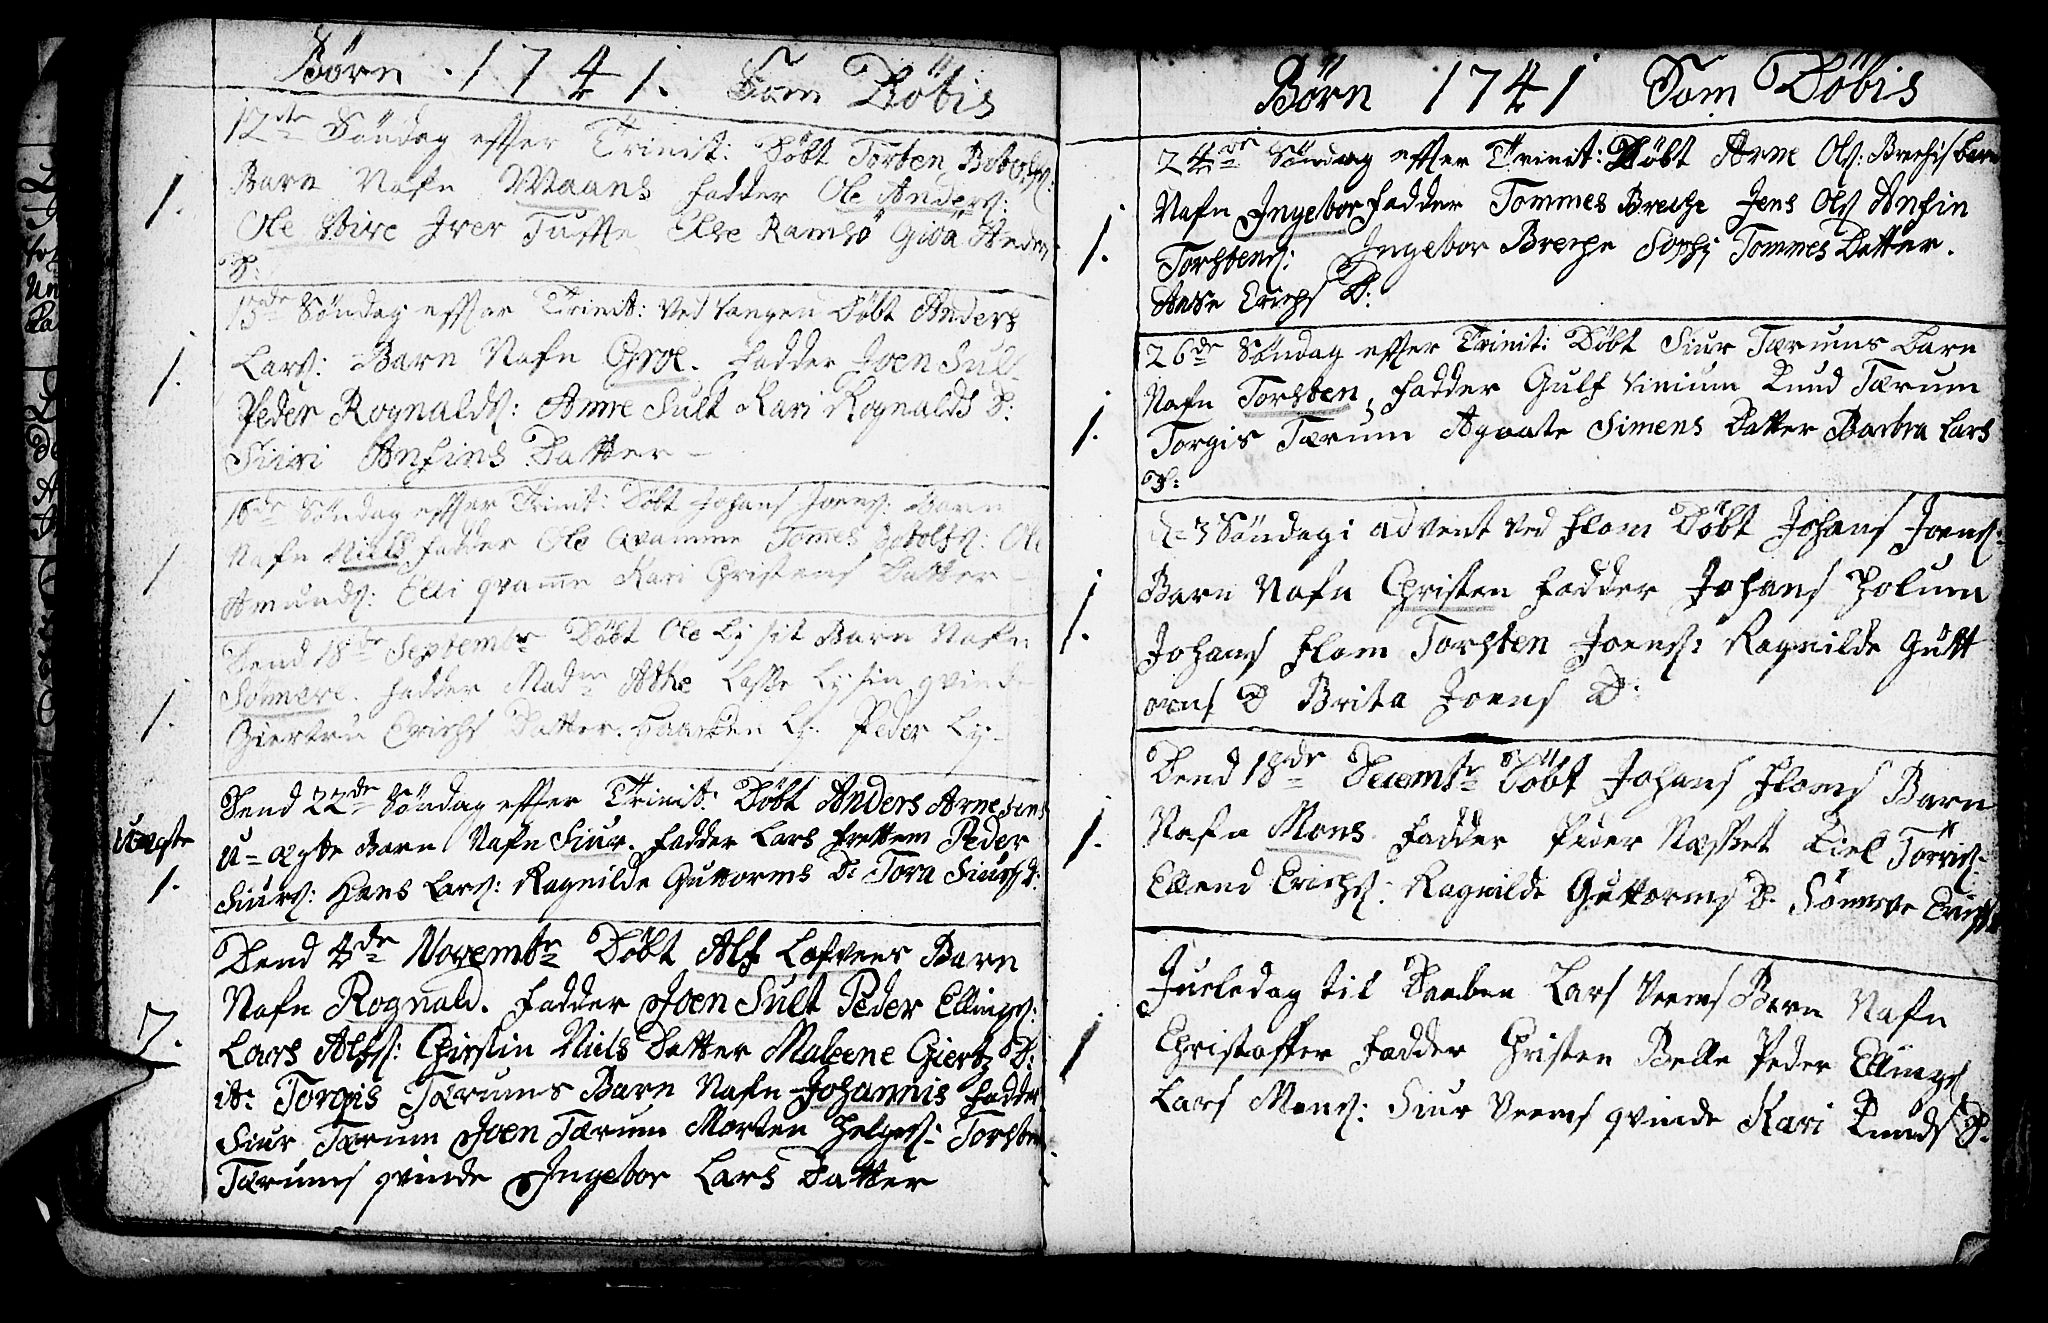 Börn . 1741. Som Döbis
12te Söndag efther Trinit: Döbt Torben
1. Barn Nafn Maans fadder Ole Anders:
Ole Vire Iver Tufte Else Ramsö Anders
D:
Söndag efther Trinit: Ved Vangen Döbt Anders
1. Lars: Barn Nafn Groe. fadder Joen Sult
Peder Rognalds: Anne Sult Kari Rognalds D:
Siiri Anfins Datter
Söndag efther Trinit: Döbt Johans Joens: Barn
1 Nafn Niels fadder Ole Qvamme Tomes Ole
Amunds: Elli qvame Kari Christens Datter
Dend 18de Septembr Döbt Ole Barn Nafn
1. Sönneve. fadder qvinde
Giertru Erichs Datter. Haachen Ly: Peder Ly:
Dend 22de Söndag efther Trinit: Döbt Anders
Uægte
1. U=ægte Barn Nafn Siur. fadder Lars Frettem Peder
Siurs: Hans Lars: Ragnilde Guttorms D: Tora Siurs D:
Dend 4de Novembr Döbt Alf Barn
Nafn Rognald. fadder Joen Sult Peder Ellings:
Lars Alfs: Chirstin Niels Datter Maleene Giertz D:
it: Torgis Tærums Barn Nafn Johannis fadder
Siur Tærum Joen Tærum Morten Helges: Torsten
Tærums qvinde Ingebor Lars Datter
Börn 1741 Som Döbis
24de Söndag efther Trinit: Döbt Arne Ols: Brechis barn
Nafn Ingebor fadder Tommes Breche Jens Ols Anfin
1. Torstens: Ingebor Breche Sophi Tommes Datter.
Erichs D:
26de Söndag efther Trinit: Döbt Siur Tærums barn
Nafn Torsten, fadder Gulf Vinium Knud Tærum
1. Torgis Tærum Agaate Simens Datter Barbra Lars
D:
3 Söndag i advent ved Flam Döbt Johans Joens:
1. Barn Nafn Christen fadder Johans Holum
Johans Flam Torsten Joens: Ragnilde Gutt
orms D Brita Joens D:
Dend 18de Decembr Döbt Johans Flams Barn
1. Nafn Mons. fadder Peder Næsset Kiel
Ellend Erichs: Ragnilde Guttorms D. Sönneve Erichs
Jueledag til Daaben Lars Veems Barn Nafn
1 Christoffer fadder Christen Belle Peder Ellings
Lars Mons: Siur Veems qvinde Kari Knuds D.